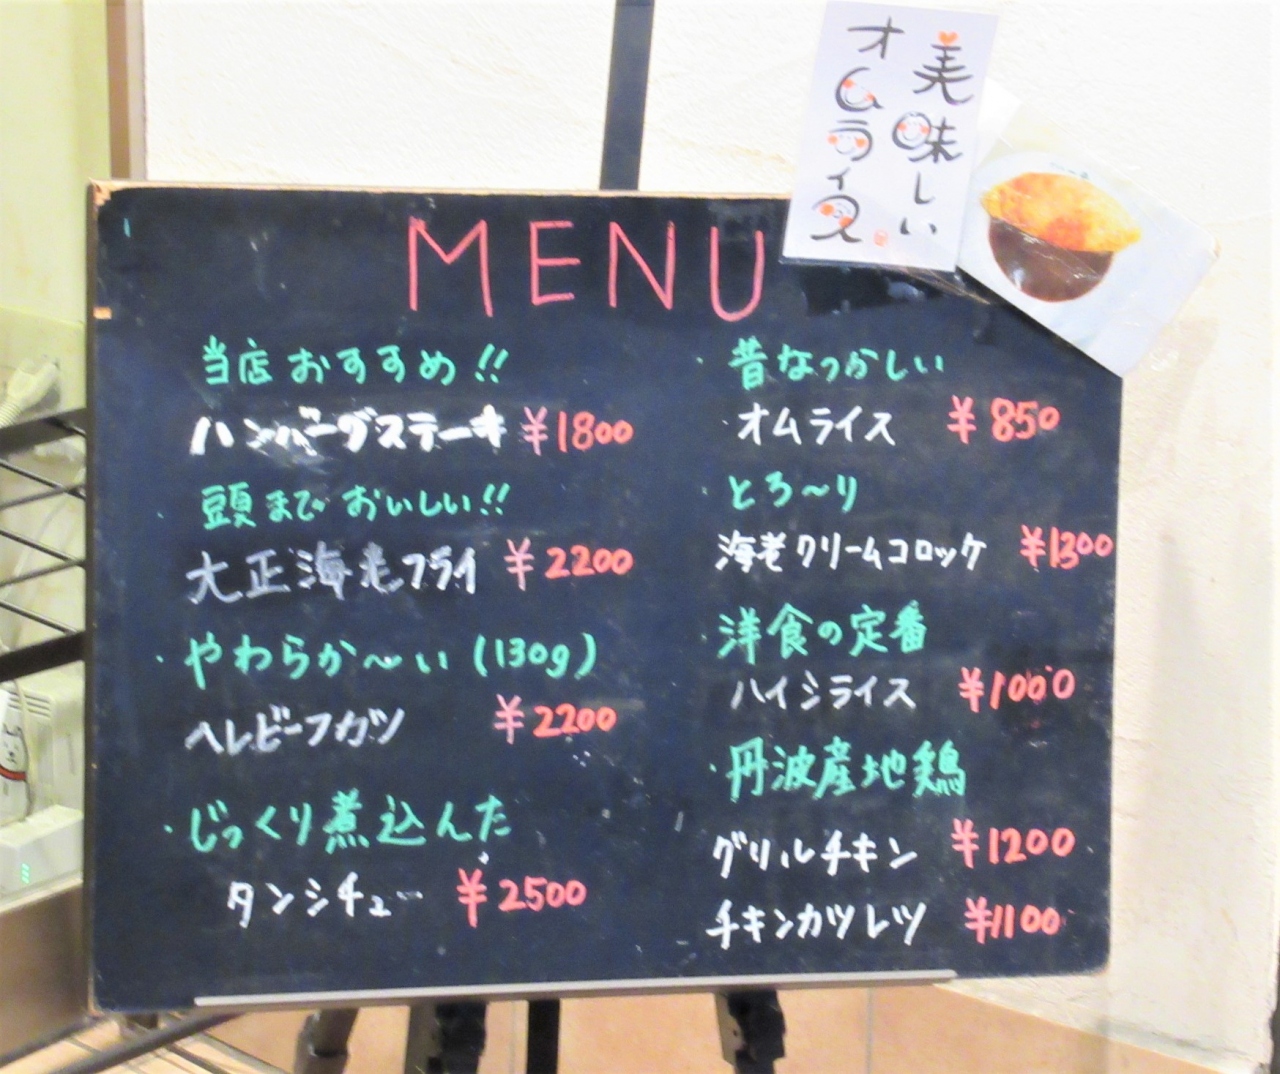 美味しい
オムライス
MENU
当店おすすめ!!
ハンバーグステーキ ¥1800
頭までおいしい!!
大正海老フライ ¥2200
・やわらか〜い (130g)
ヘレビーフカツ ¥2200
・じっくり煮込んだ
タンシチュー ¥2500
・昔なつかしい
・オムライス ¥850
・とろ〜り
海老クリームコロッケ ¥1300
・洋食の定番
ハイシライス ¥1000
・丹波産地鶏
グリルチキン ¥1200
チキンカツレツ ¥1100